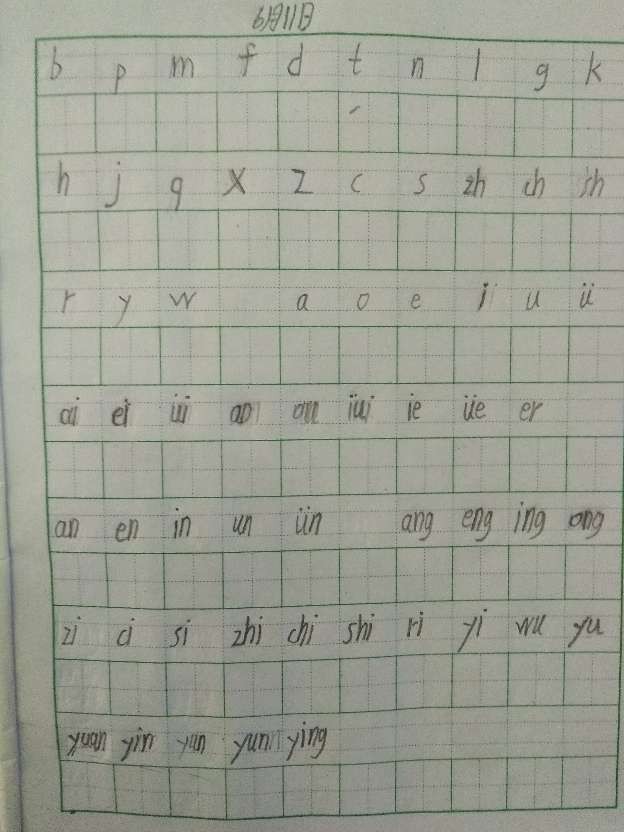 6月11日
b p m f d t n l g k
h j q x z c s zh ch sh
r y w a o e i u ü
ai ei ui ao ou iu ie üe er
an en in un ün ang eng ing ong
zi ci si zhi chi shi ri yi wu yu
yuan yin yun ying